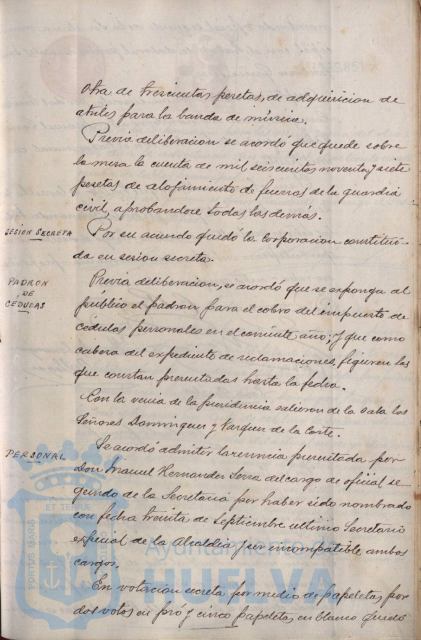 otra de trescientas pesetas, de adquisicion de
atriles para la banda de música.
Previa deliberacion se acordó que quede sobre
la mesa la cuenta de mil seiscientas noventa y siete
pesetas de alojamiento de fuerzas de la guardia
civil, aprobandose todas las demás.
SESION SECRETA
Por su acuerdo quedó la Corporacion constitui-
da en sesion secreta.
PADRON
DE
CEDULAS
Previa deliberacion, se acordó que se exponga al
público el padron para el cobro del impuesto de
cédulas personales en el corriente año; y que como
cabeza del expediente de reclamaciones, figuren las
que constan presentadas hasta la fecha.
Con la venia de la presidencia salieron de la sala los
Señores Dominguez y Vazquez de la Corte.
PERSONAL
Se acordó admitir la renuncia presentada por
Don Manuel Hernandez del cargo de oficial se-
gundo de la Secretaría por haber sido nombrado
con fecha treinta de Septiembre ultimo Secretario
especial de la Alcaldía y ser incompatible ambos
cargos.
En votacion secreta por medio de papeletas, por
dos votos en pró y cinco papeletas en blanco quedó
Ayuntamiento de
HUELVA